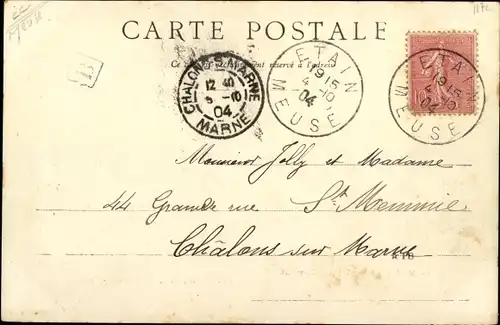 CARTE POSTALE
Ce côté est exclusivement réservé à l'adresse
CHALONS-S-MARNE
12 40
5 -10
04
MARNE
ETAIN
1915
4 -10
04
MEUSE
ETAIN
1915
04
MEUSE
B
Monsieur Jolly et Madame
44 Grande rue St. Memmie
Châlons sur Marne